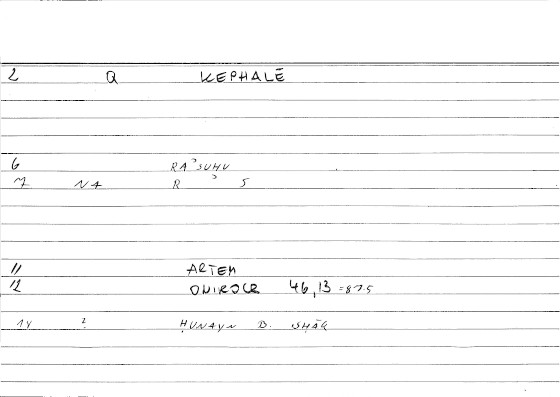 2 Q KEPHALĒ
6 RAʾSUHU
7 NA R ʾ S
11 ARTEM
12 ONIROCR 46,13 =875
14 2 ḤUNAYN B. ISḤĀQ